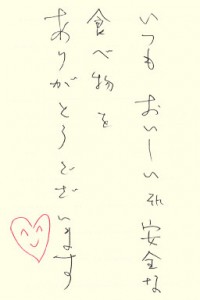 いつも おいしい 安全な
食べ物を
ありがとうござ
います